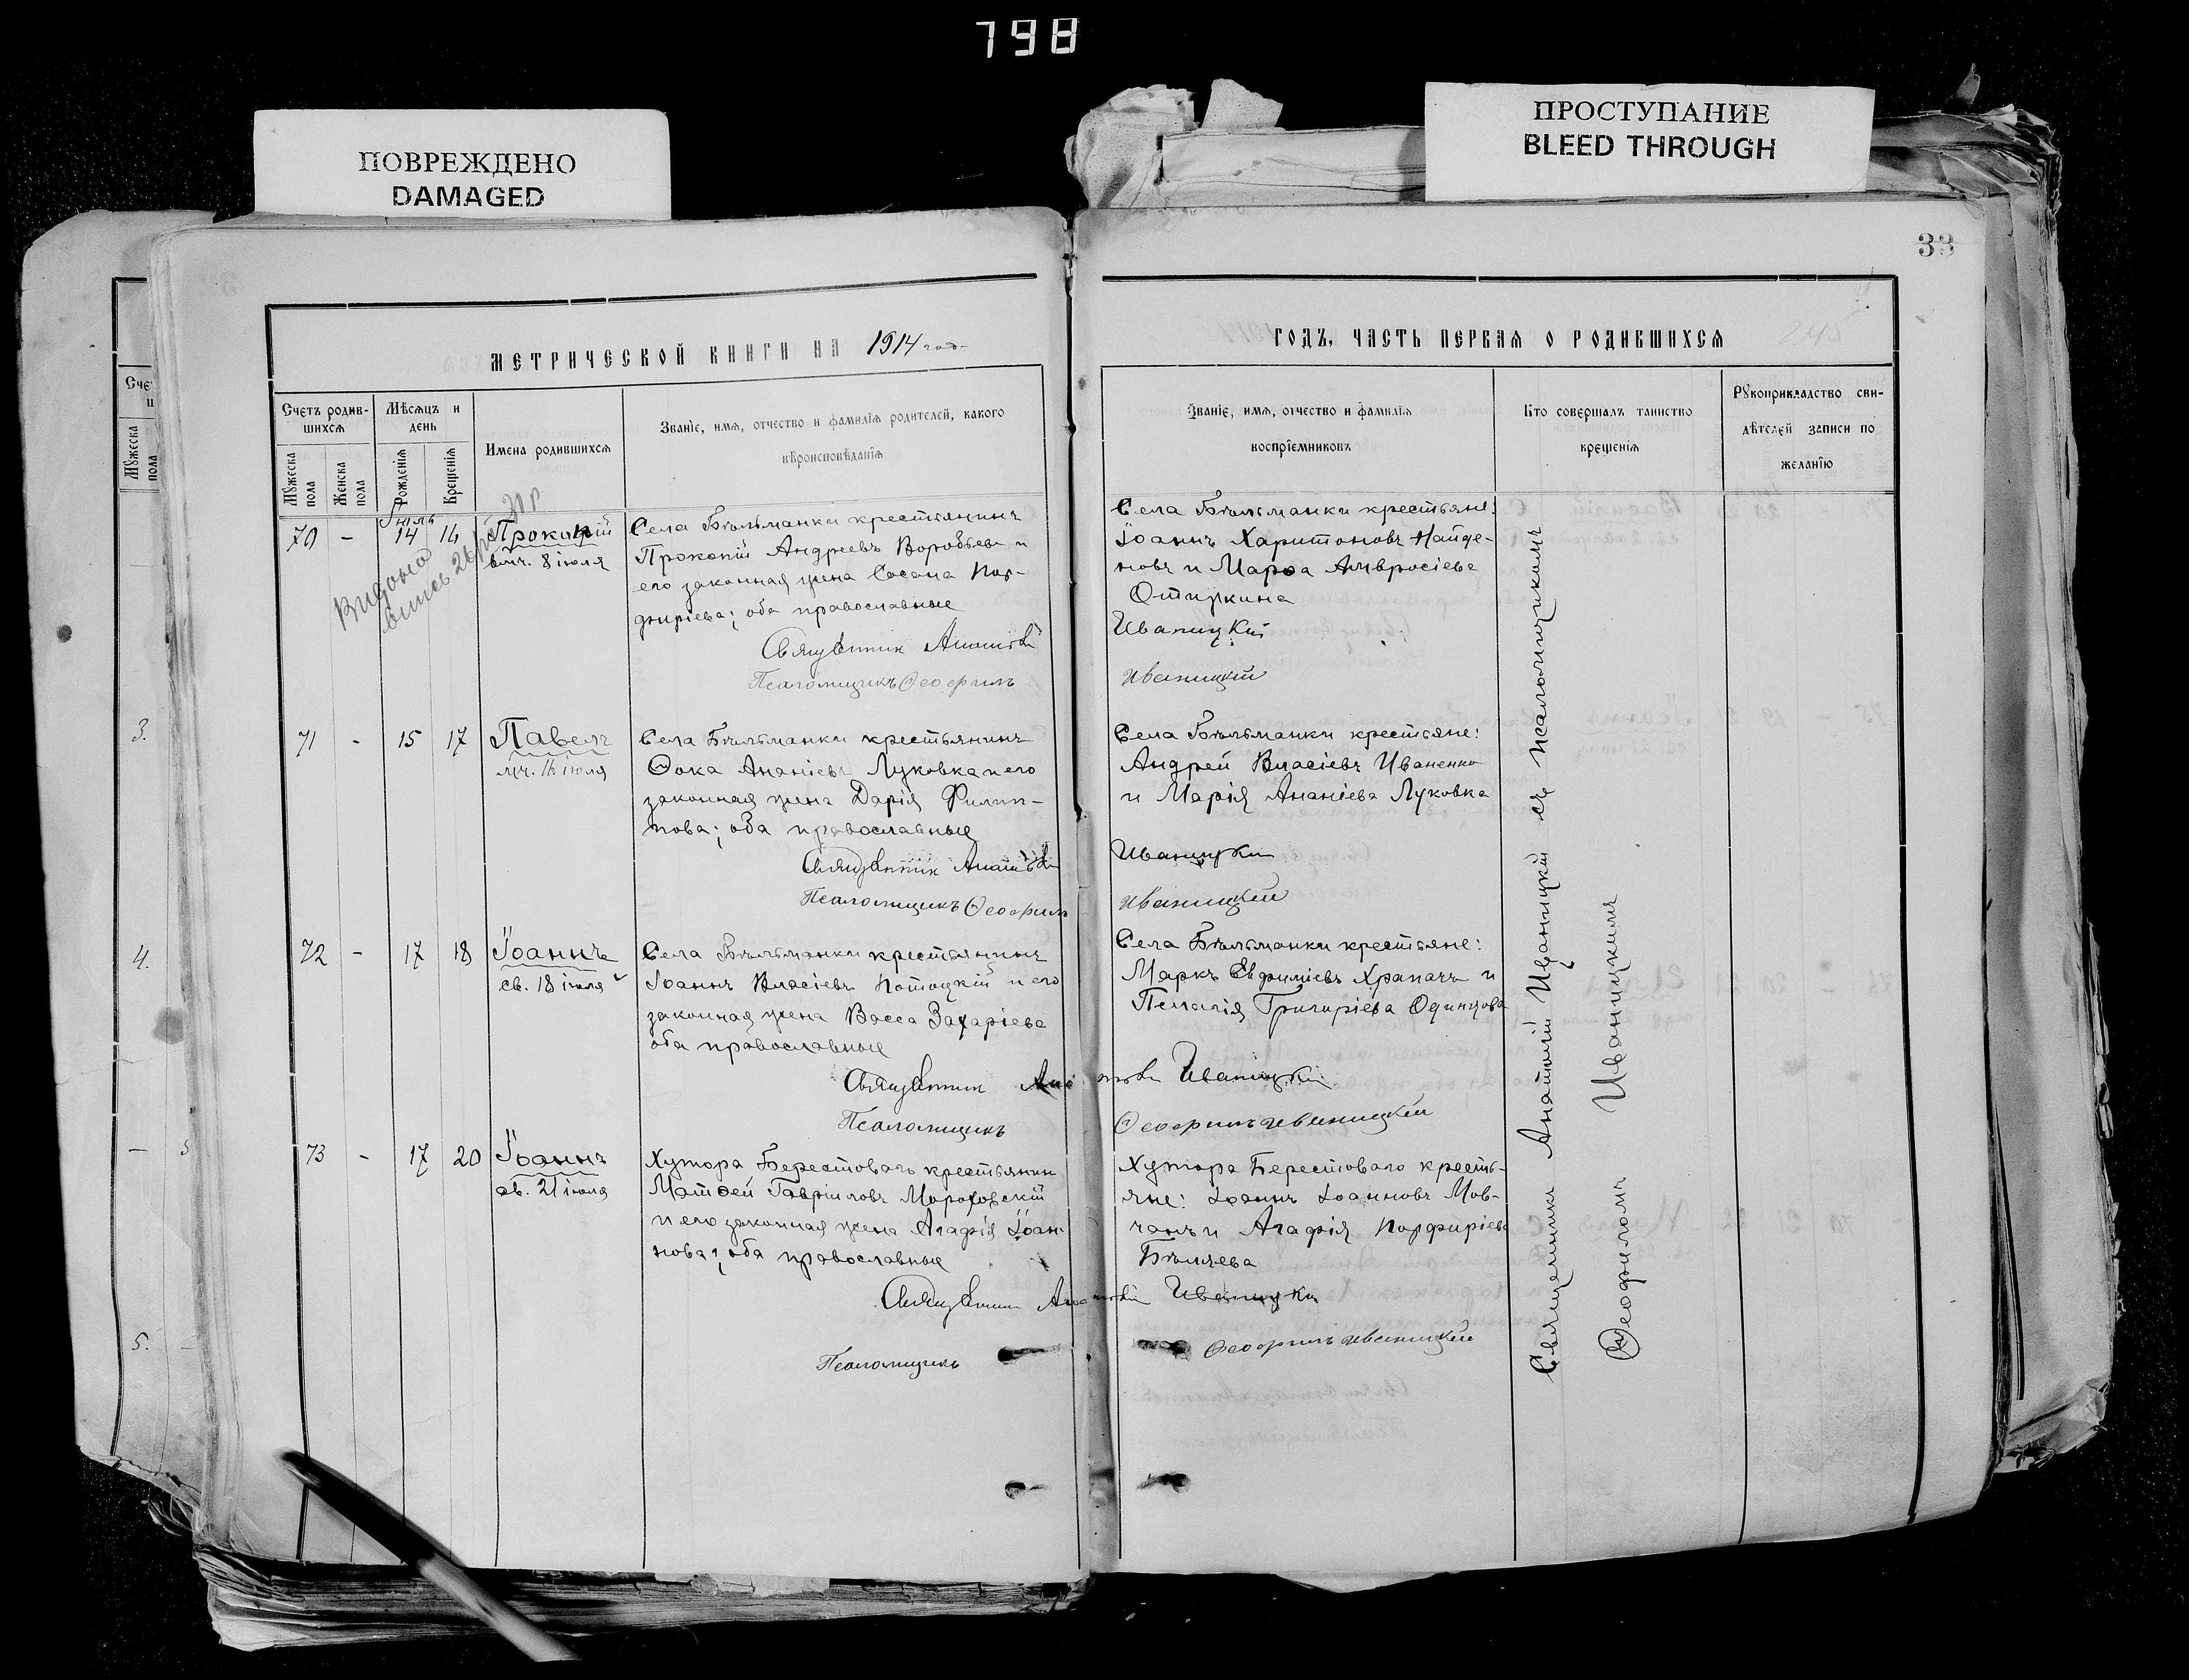 798
ПОВРЕЖДЕНО
DAMAGED
ПРОСТУПАНИЕ
BLEED THROUGH
33
МЕТРИЧЕСКОЙ КНИГИ НА 1914 год
Счетъ родив-
шихся
Мѣсяцъ и
день
Имена родившихся
Званіе, имя, отчество и фамилія родителей, какого
вѣроисповѣданія
Мужеска
пола
Женска
пола
Рожденія
Крещенія
Іюль
70 - 14 16 Прокопій
вмч. 8 іюля
Выдана
выпись
Села Бѣльманки крестьянинъ
Прокопій Андреевъ Воробьевъ и
его законная жена Сосана Пор-
фиріева; оба православные
Священникъ Анатолій
Псаломщикъ Ѳеофилъ
71 - 15 17 Павелъ
мч. 16 іюля
Села Бѣльманки крестьянинъ
Ѳока Ананіевъ Луковка и его
законная жена Дарія Филип-
пова; оба православные
Священникъ Анатолій
Псаломщикъ Ѳеофилъ
72 - 17 18 Іоаннъ
св. 18 іюля
Села Бѣльманки крестьянинъ
Іоаннъ Власіевъ Потоцкій и его
законная жена Васса Захаріева
оба православные
Священникъ Анатолій
Псаломщикъ
73 - 17 20 Іоаннъ
св. 21 іюля
Хутора Берестоваго крестьянин
Матѳей Гавріиловъ Мороховскій
и его законная жена Агафія Іоан-
нова; оба православные
Священникъ Анатолій
Псаломщикъ
ГОДЪ, ЧАСТЬ ПЕРВАЯ О РОДИВШИХСЯ
Званіе, имя, отчество и фамилія
воспріемниковъ
Кто совершалъ таинство
крещенія
Рукоприкладство сви-
дѣтелей записи по
желанію
Села Бѣльманки крестьяне:
Іоаннъ Харитоновъ Найде-
новъ и Марѳа Амвросіева
Иваницкій
Иваницкій
Села Бѣльманки крестьяне:
Андрей Власіевъ Иваненко
и Марія Ананіева Луковка
Иваницкій
Иваницкій
Села Бѣльманки крестьяне:
Маркъ Евфиміевъ Храпачъ и
Пелагія Григоріева Одинцова
Иваницкій
Ѳеофилъ Иваницкій
Хутора Берестоваго кресть-
яне: Іоаннъ Іоанновъ Мов-
чанъ и Агафія Порфиріева
Бѣляева
Иваницкій
Ѳеофилъ Иваницкій
Священникъ Анатолій Иваницкій съ псаломщикомъ
Ѳеофиломъ Иваницкимъ
Сче
Мужеска
пола
3.
4.
5.